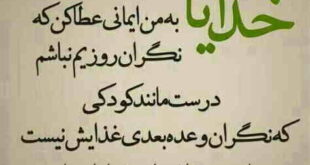 خدایا
به من ایمانی عطا کن که
نگران روزیم نباشم
درست مانند کودکی
که نگران وعده بعدی غذایش نیست